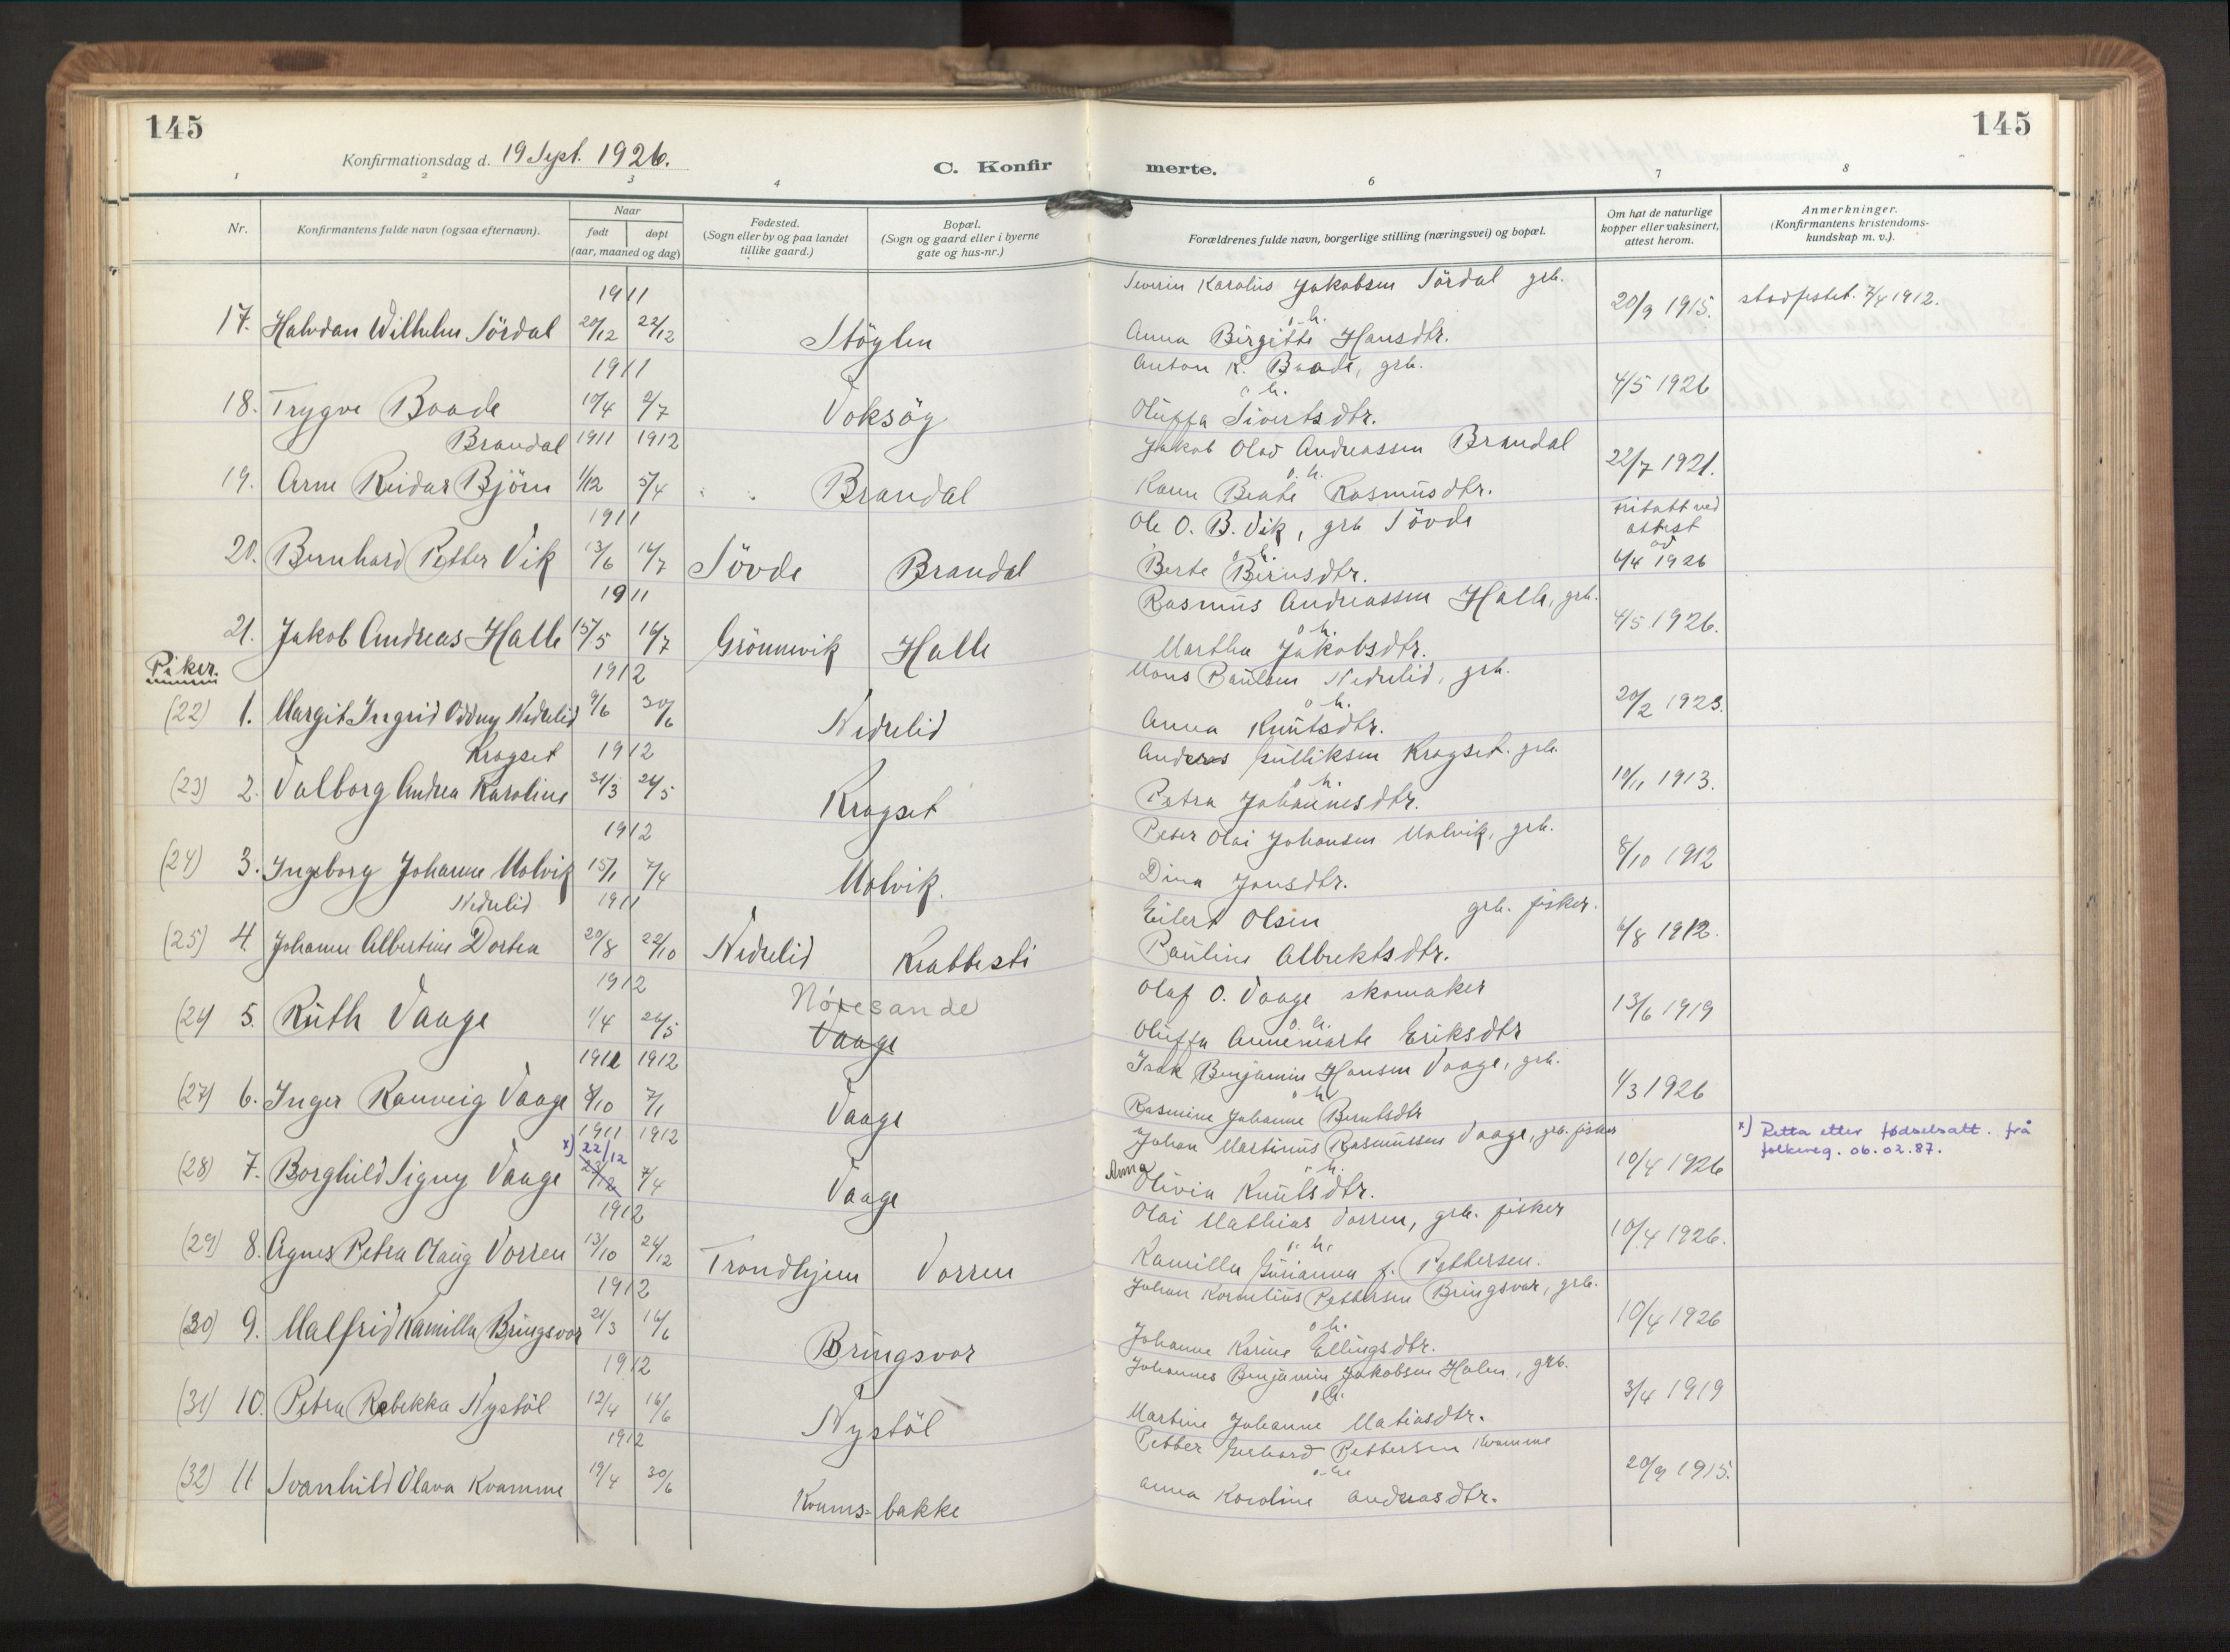 145
145
Konfirmationsdag d. 19 Sept. 1926.
C. Konfirmerte.
1 2 3 4 6 7 8
Nr.
Konfirmantens fulde navn (ogsaa efternavn).
Naar
født døpt
(aar, maaned og dag)
Fødested.
(Sogn eller by og paa landet
tillike gaard.)
Bopæl.
(Sogn og gaard eller i byerne
gate og hus-nr.)
Forældrenes fulde navn, borgerlige stilling (næringsvei) og bopæl.
Om hat de naturlige
kopper eller vaksinert,
attest herom.
Anmerkninger.
(Konfirmantens kristendoms-
kundskap m. v.).
1911 Severin Karolus Jakobsen Sördal grb.
17. Halvdan Wilhelm Sördal 20/12 22/12 Stöylen o. h. 20/9 1915. stadfestet. 7/4 1912.
Anna Birgitte Hansdtr.
1911 Anton K. Baade, grb.
18. Trygve Baade 10/4 2/7 Voksöy o h. 4/5 1926
Oluffa Sivertsdtr.
Brandal 1911 1912 Jakob Olav Andreassen Brandal
19. Arne Reidar Björn 1/12 5/4 Brandal o. h. 22/7 1921.
Karen Beate Rasmusdtr.
1911 Ole O. B. Vik, grb Sövde
20. Bernhard Petter Vik 13/6 16/7 Sövde Brandal o h. Fritatt ved
attest
av
6/4 1926
Berte Berusdtr.
1911 Rasmus Andreassen Halle, grb.
21. Jakob Andreas Halle 15/5 16/7 Grönnevik Halle o h. 4/5 1926.
Martha Jakobsdtr.
Piker.
1912 Mons Paulsen Nedrelid, grb.
(22) 1. Margit Ingrid Oddny Nedrelid 9/6 30/6 Nedrelid o h. 20/2 1923.
Anna Knutsdtr.
Kragset 1912 Anders Gulliksen Kragset. grb.
(23) 2. Valborg Andrea Karoline 31/3 26/5 Kragset o h. 10/11 1913.
Petra Johannesdtr.
1912 Peter Olai Johansen Molvik, grb.
(24) 3. Ingeborg Johanne Molvik 15/1 7/4 Molvik. 8/10 1912
Dina Jonsdtr.
Nedrelid 1911 Eilert Olsen grb. fisker.
(25) 4. Johanne Albertine Dortea 20/8 22/10 Nedrelid Krabbesti 6/8 1912.
Pauline Albrektsdtr.
1912 Olaf O. Vaage skomaker
(26) 5. Ruth Vaage 1/4 26/5 Nöresande o. h. 13/6 1919
Vaage
Oluffa Annemarte Eriksdtr
1911 1912 Isak Benjamin Hansen Vaage, grb.
(27) 6. Inger Ranveig Vaage 8/10 7/1 Vaage o h 1/3 1926
Rasmine Johanne Berntsdtr
1911 1912 Johan Martinus Rasmussen Vaage, grb. fisker
(28) 7. Borghild Signy Vaage x) 22/12 23/12 7/4 Vaage o h. 10/4 1926 x) Retta etter fødselsatt. frå
folkereg. 06.02.87.
Anna Olivia Knutsdtr.
1912 Olai Mathias Vorren, grb. fisker
(29) 8. Agnes Petra Olaug Vorren 13/10 26/12 Trondhjem Vorren o. h. 10/4 1926.
Kamilla Gurianna f. Pettersen.
1912 Johan Kornelius Pettersen Bringsvor, grb.
(30) 9. Malfrid Kamilla Bringsvor 21/3 16/6 Bringsvor o h. 10/4 1926
Johanne Karine Ellingsdtr.
1912 Johannes Benjamin Jakobsen Holen, grb.
(31) 10. Petra Rebekka Nystöl 12/4 16/6 Nystöl o h. 3/4 1919
Martine Johanne Matiasdtr.
1912 Petter Gerhard Pettersen Kvamme
(32) 11 Svanhild Olava Kvamme 19/4 30/6 Kvams=bakke o. h. 20/9 1915.
Anna Karoline Andreasdtr.